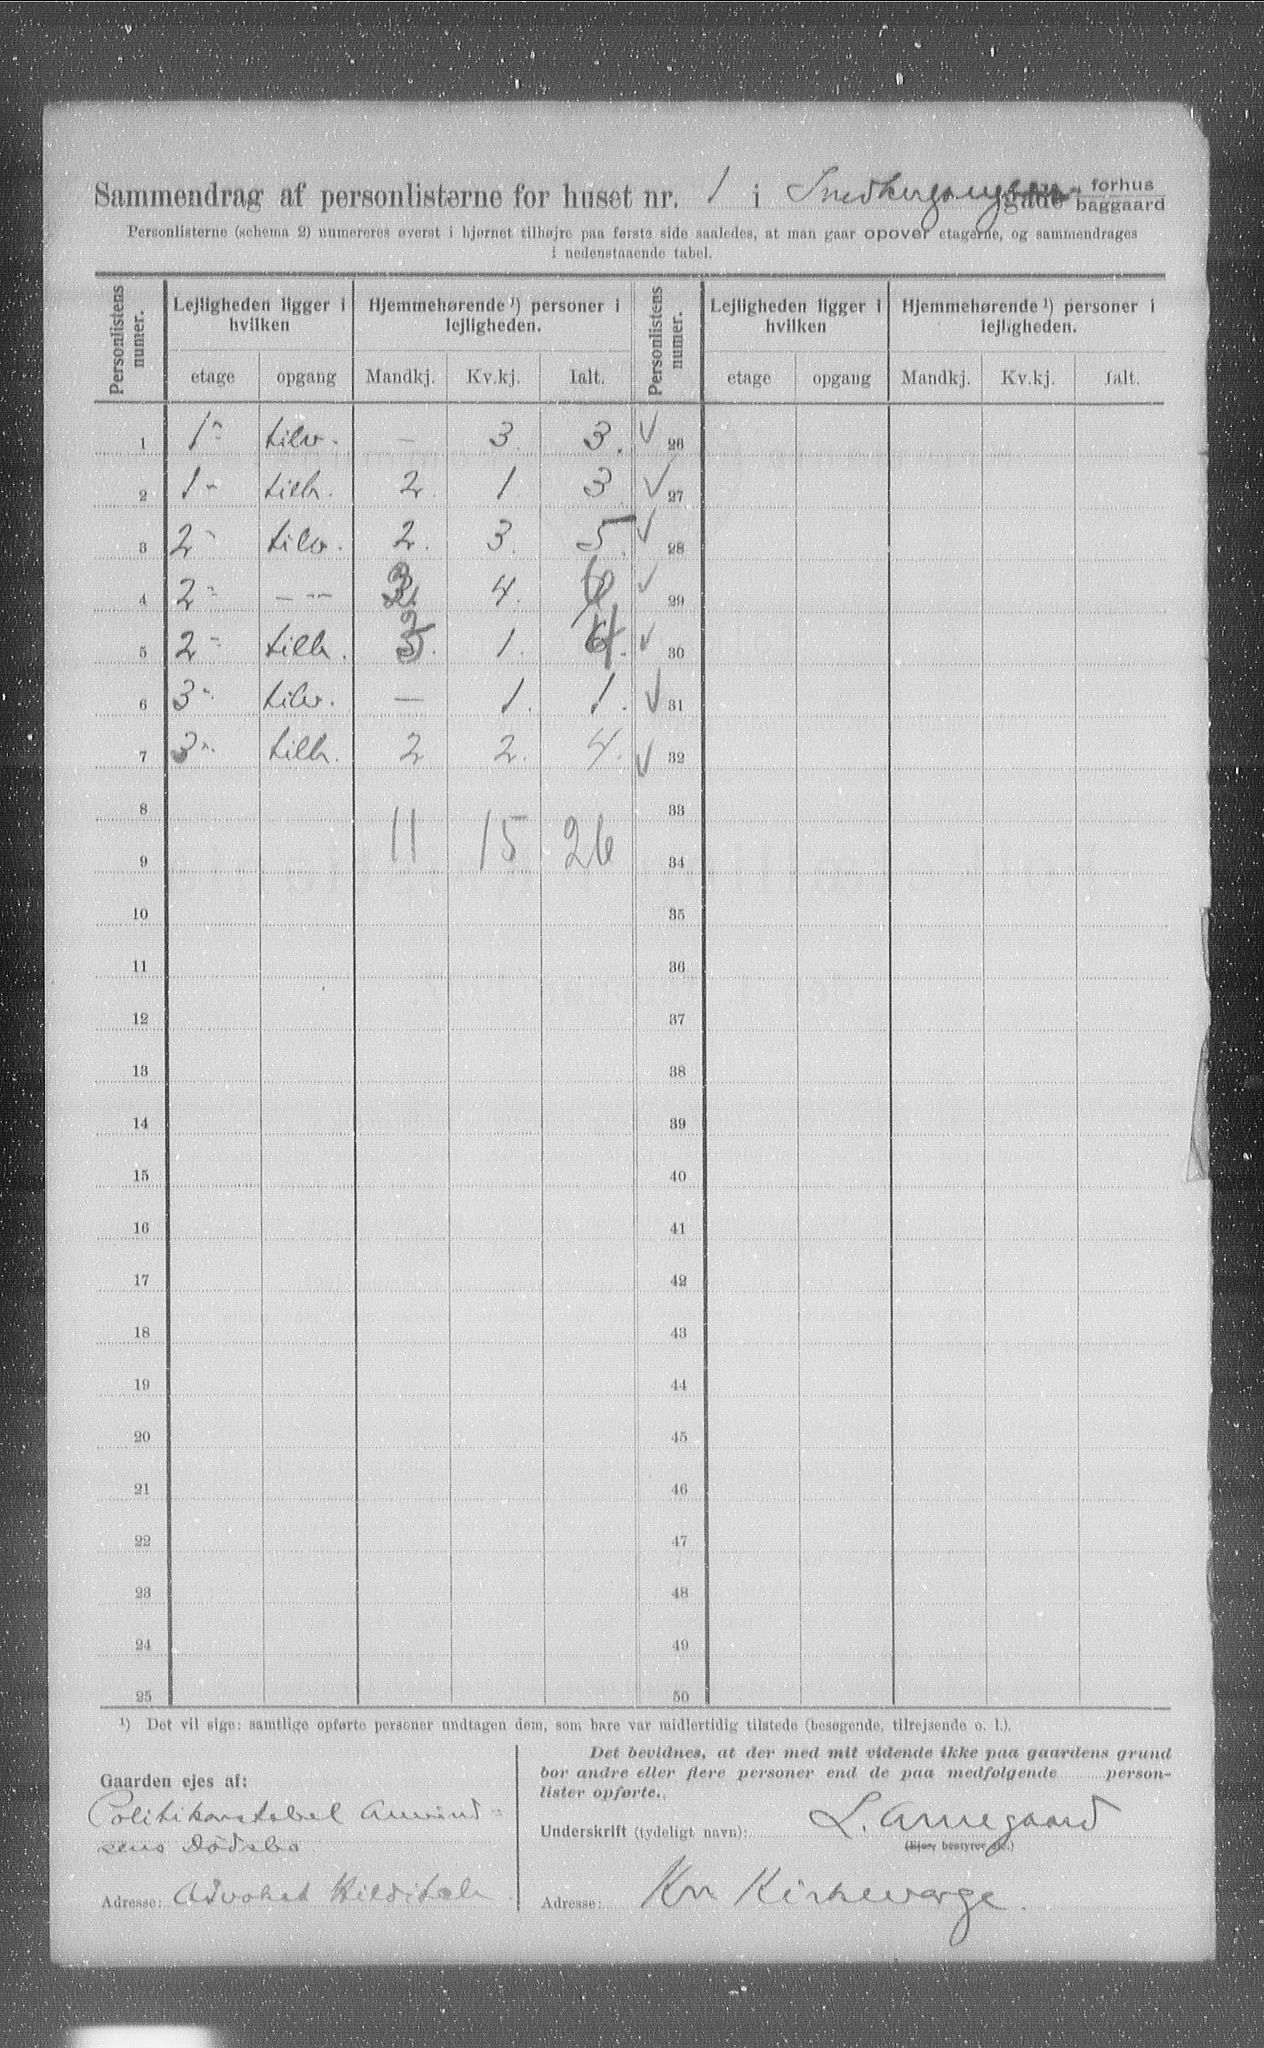 Sammendrag af personlisterne for huset nr. 1 i Snedkergangen gade forhus baggaard
Personlisterne (schema 2) numereres øverst i hjørnet tilhøjre paa første side saaledes, at man gaar opover etagerne, og sammendrages
i nedenstaaende tabel.
Personlistens numer. Lejligheden ligger i hvilken Hjemmehørende ¹) personer i lejligheden. Personlistens numer. Lejligheden ligger i hvilken Hjemmehørende ¹) personer i lejligheden.
etage opgang Mandkj. Kv.kj. Ialt. etage opgang Mandkj. Kv.kj. Ialt.
1 1" tilv. — 3. 3. 26
2 1" tilh. 2. 1. 3. 27
3 2" tilv. 2. 3. 5. 28
4 2" — " — 3. 4. 29
5 2" tilh. 2 5. 1. 4. 30
6 3" tilv. — 1. 1. 31
7 3" tilh. 2 2. 4. 32
8 33
11 15 26
9 34
10 35
11 36
12 37
13 38
14 39
15 40
16 41
17 42
18 43
19 44
20 45
21 46
22 47
23 48
24 49
25 50
¹) Det vil sige: samtlige opførte personer undtagen dem, som bare var midlertidig tilstede (besøgende, tilrejsende o. l.).
Gaarden ejes af:
Politikonstabel Amund-
sens Dødsbo
Adresse: Advokat
Det bevidnes, at der med mit vidende ikke paa gaardens grund
bor andre eller flere personer end de paa medfølgende person-
lister opførte.
Underskrift (tydeligt navn): L. Arnegaard
(Ejer, bestyrer etc.)
Adresse: Kr Kirkeværge.